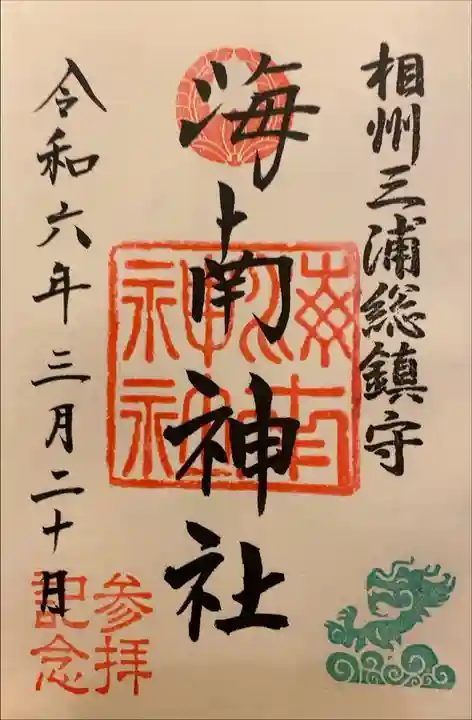 相州三浦総鎮守
海南神社
海南神社
令和六年三月二十日
参拝
記念